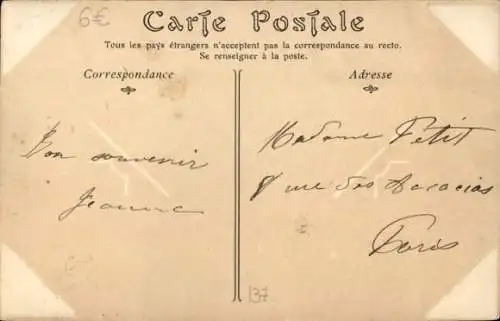 6€
Carte Postale
Tous les pays étrangers n'acceptent pas la correspondance au recto.
Se renseigner à la poste.
Correspondance
Adresse
Bon souvenir
Jeanne
Madame Petit
8 rue des Acacias
Paris
137